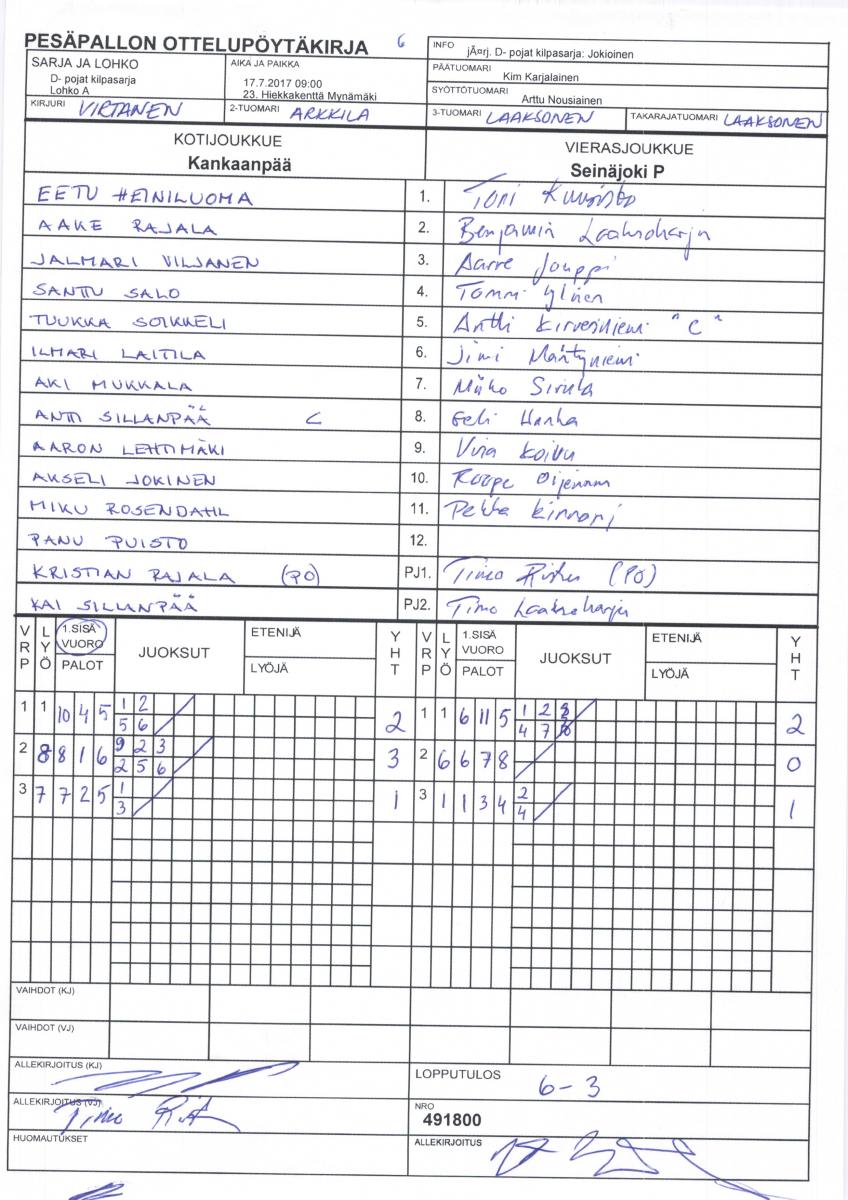 PESÄPALLON OTTELUPÖYTÄKIRJA 6
INFO jÃ¤rj. D- pojat kilpasarja: Jokioinen
SARJA JA LOHKO
D- pojat kilpasarja
Lohko A
AIKA JA PAIKKA
17.7.2017 09:00
23. Hiekkakenttä Mynämäki
PÄÄTUOMARI Kim Karjalainen
SYÖTTÖTUOMARI Arttu Nousiainen
KIRJURI VIRTANEN 2-TUOMARI ARKKILA 3-TUOMARI LAAKSONEN TAKARAJATUOMARI LAAKSONEN
KOTIJOUKKUE VIERASJOUKKUE
Kankaanpää Seinäjoki P
EETU HEINILUOMA 1. Toni
AAKE RAJALA 2. Benjamin Laaksoharju
JALMARI VILJANEN 3. Aarre Jouppi
SANTTU SALO 4. Tommi Ylinen
TUUKKA SOIKKELI 5. Antti Kirvesniemi "C"
ILMARI LAITILA 6. Jimi Mäntyniemi
AKI MUKKALA 7.
ANTTI SILLANPÄÄ C 8. Eeli
AARON LEHTIMÄKI 9. Koivu
AKSELI JOKINEN 10. Roope
MIKU ROSENDAHL 11. Pekka
PANU PUISTO 12.
KRISTIAN RAJALA (PO) PJ1. Timo (PO)
KAI SILLANPÄÄ PJ2. Timo Laaksoharju
VRP LYÖ 1.SISÄ VUORO PALOT JUOKSUT ETENIJÄ LYÖJÄ YHT VRP LYÖ 1.SISÄ VUORO PALOT JUOKSUT ETENIJÄ LYÖJÄ YHT
1 1 10 4 5 1 2 2 1 1 6 11 5 1 2 2
5 6 4 7
2 8 8 1 6 9 2 3 3 2 6 6 7 8 0
2 5 6
3 7 7 2 5 1 1 3 1 1 3 4 2 1
3 4
VAIHDOT (KJ)
VAIHDOT (VJ)
ALLEKIRJOITUS (KJ)
LOPPUTULOS 6-3
ALLEKIRJOITUS (VJ) Timo
NRO
491800
HUOMAUTUKSET
ALLEKIRJOITUS